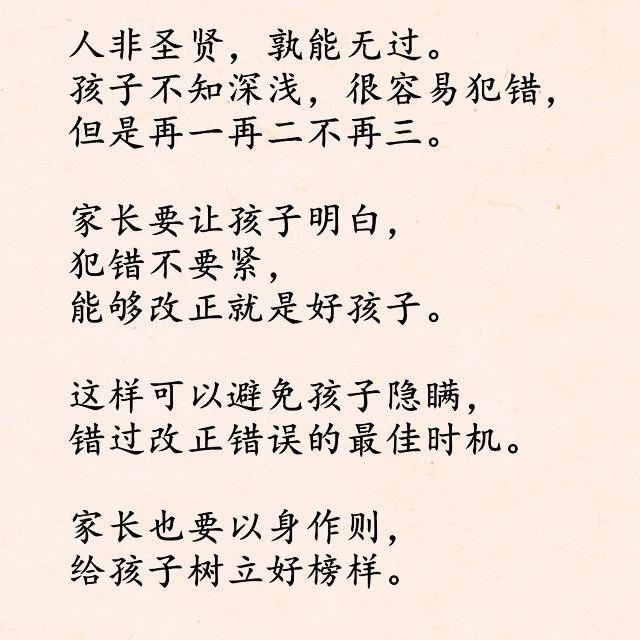 人非圣贤，孰能无过。
孩子不知深浅，很容易犯错，
但是再一再二不再三。
家长要让孩子明白，
犯错不要紧，
能够改正就是好孩子。
这样可以避免孩子隐瞒，
错过改正错误的最佳时机。
家长也要以身作则，
给孩子树立好榜样。